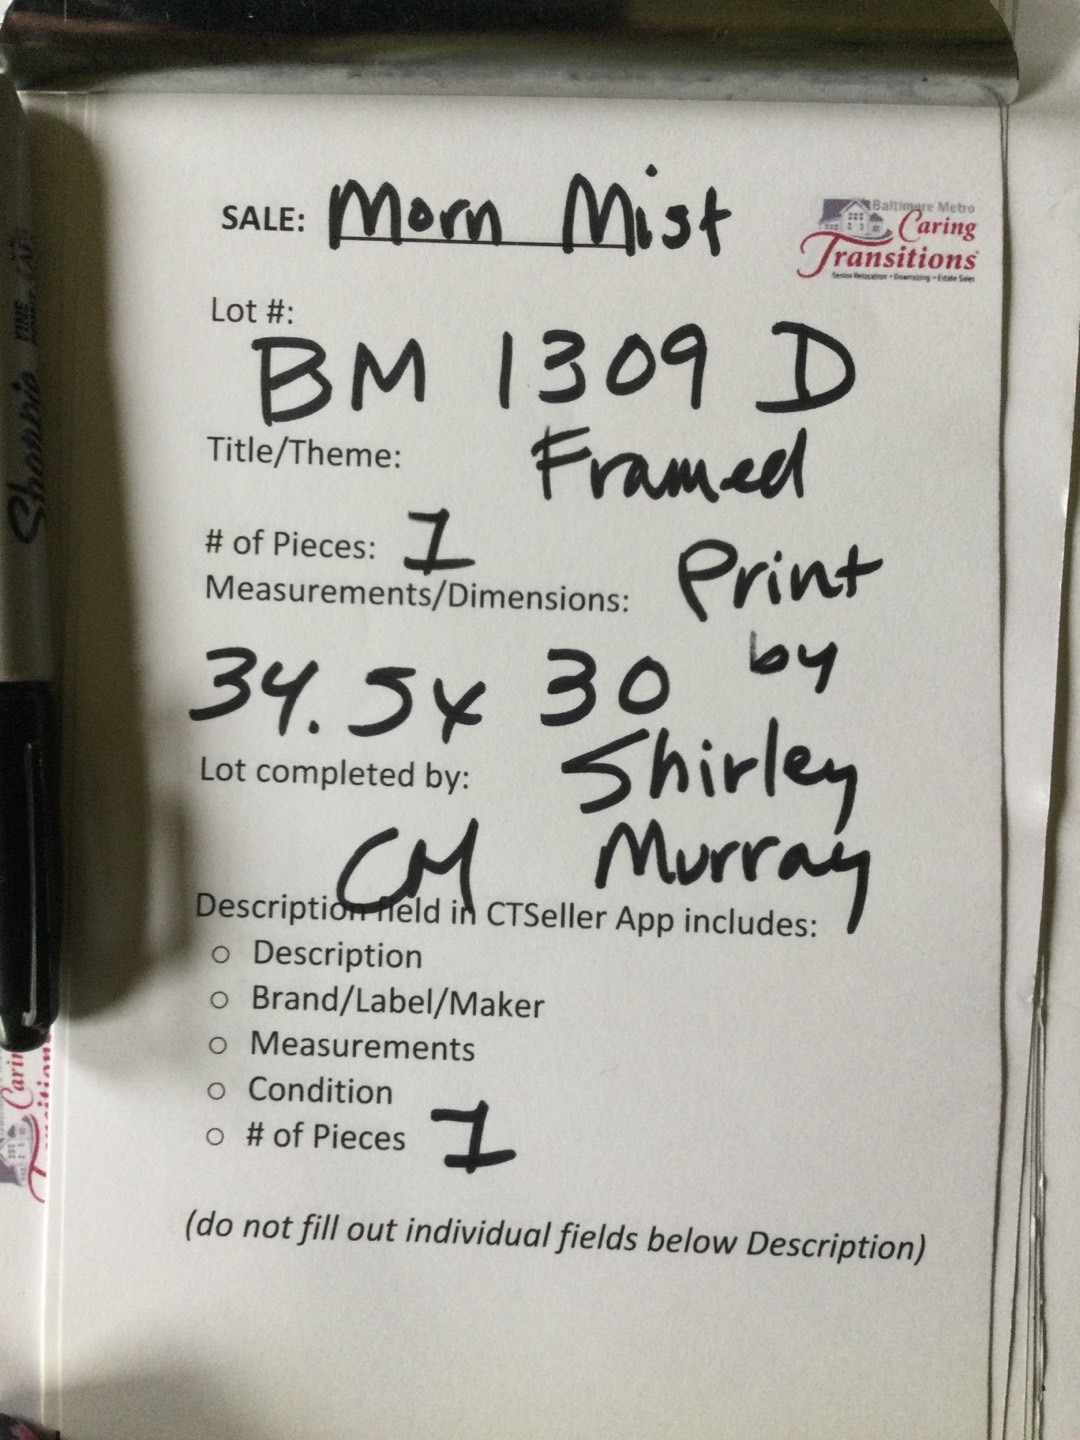 SALE: Morn Mist
Baltimore Metro
Caring
Transitions
Senior Relocation • Downsizing • Estate Sales
Lot #:
BM 1309 D
Title/Theme: Framed
# of Pieces: 1
Print
Measurements/Dimensions:
by
34.5x 30
Shirley
Lot completed by:
Murray
CM
Description field in CTSeller App includes:
○ Description
○ Brand/Label/Maker
○ Measurements
○ Condition
○ # of Pieces 1
(do not fill out individual fields below Description)
Sharpie
FINE